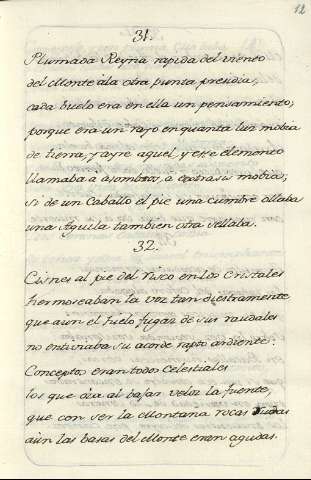 12
31.
Plumada Reyna rapida del viento
del Monte àla otra punta presidia,
cada buelo era en ella un pensamiento,
porque era un rayo en quanta luz movia
de tierra, y ayre aquel, y ese elemento
llamaba à asombros, à movia;
si de un Caballo el pie una cumbre ollaba
una Aguila tambien otra sellaba.
32.
Cisnes al pie del risco en los Cristales
hermoseaban la voz tan diestramente
que aùn el hielo fugaz de sus raudales
no entiviaba su acorde rapto ardiente.
Conceptos eran todos Celestiales
los que oìa al bajar veloz la fuente,
que con ser la Montana rocas
aùn las basas del Monte eran agudas.